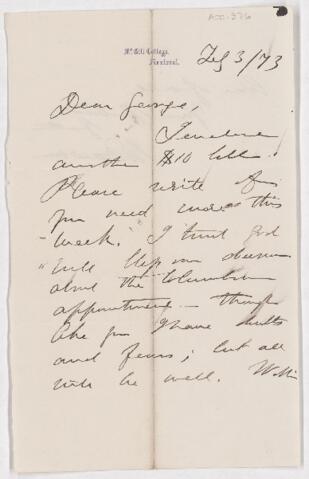 Acc-376
McGill College,
Montreal.
Feb 3/73
Dear George,
I enclose
another $10 bill.
Please write if
you need more this
week. I trust God
will bless our
about the Columbia
appointment — though
like you I have doubts
and fears; but all
will be well.